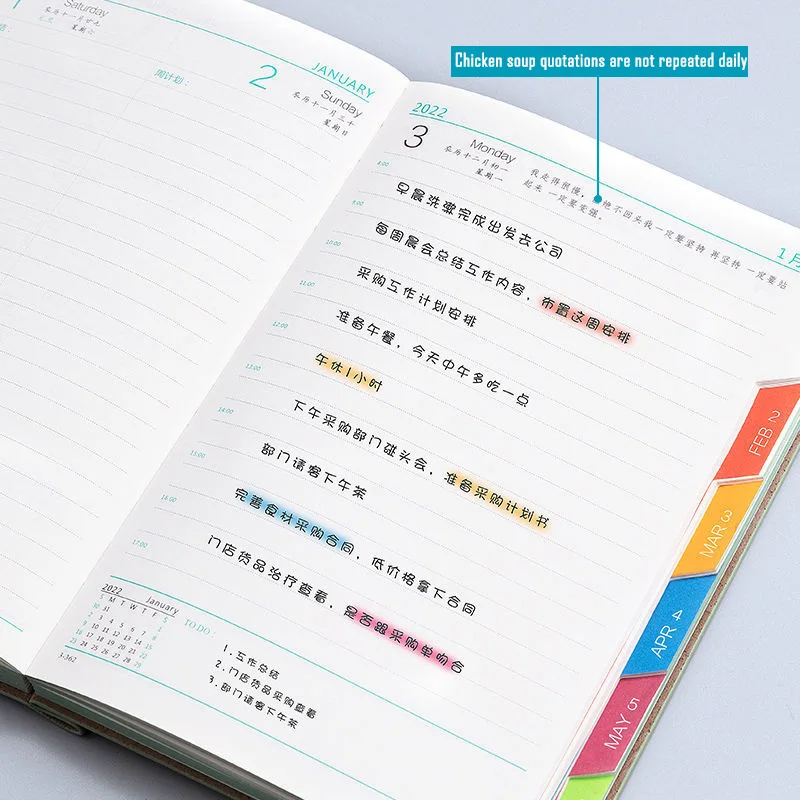 Chicken soup quotations are not repeated daily
1
Saturday
农历十一月廿九
星期六
周计划：
JANUARY
2
Sunday
农历十一月三十
星期日
2022
3
Monday
农历十二月初一
星期一
我走得很慢，绝不回头我一定要坚持 再坚持 一定要站
起来 一定要变强。
1月
8:00
早晨洗漱完成出发去公司
9:00
每周晨会总结工作内容，布置这周安排
10:00
采购工作计划安排
11:00
准备午餐，今天中午多吃一点
12:00
午休1小时
13:00
下午采购部门碰头会，准备采购计划书
14:00
部门请客下午茶
15:00
完善食材采购合同，低价格拿下合同
16:00
门店货品治疗查看，是否跟采购单吻合
17:00
2022 January
S M T W T F S
30 31 1
2 3 4 5 6 7 8
9 10 11 12 13 14 15
16 17 18 19 20 21 22
23 24 25 26 27 28 29
3-362
TO DO :
1.工作总结
2.门店货品采购查看
3.部门请客下午茶
FEB 2
MAR 3
APR 4
MAY 5